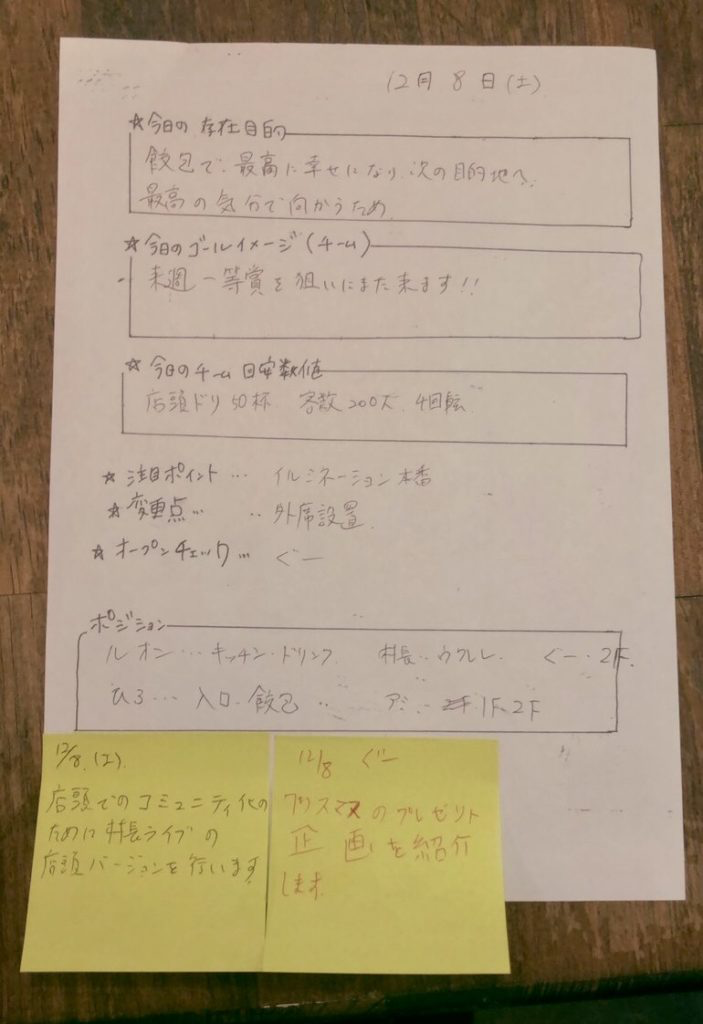 12月 8日(土)
☆今日の存在目的
餃包で、最高に幸せになり、次の目的地へ、
最高の気分で向かうため
☆今日のゴールイメージ(チーム)
来週一等賞を狙いにまた来ます!!
☆今日のチーム目安数値
店頭ドリ50杯 客数200人 4回転
☆注目ポイント… イルミネーション本番
☆変更点… ‥外席設置
☆オープンチェック… ぐー
ポジション
ルオン…キッチン・ドリンク 村長‥ウクレレ ぐー‥2F
ひろ…入口・餃包‥ アミ‥1F、2F
12/8.(土)
店頭でのコミュニティ化の
ために村長ライブの
店頭バージョンを行います
12/8 ぐー
クリスマスのプレゼント
企画を紹介
します